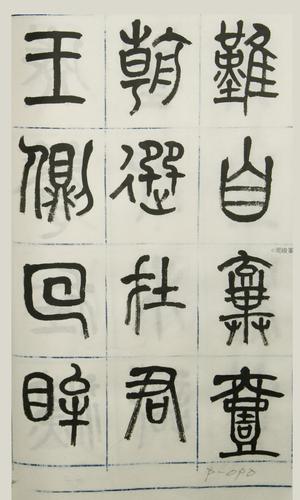 難自棄壹
朝選在君
王側回眸
P-090